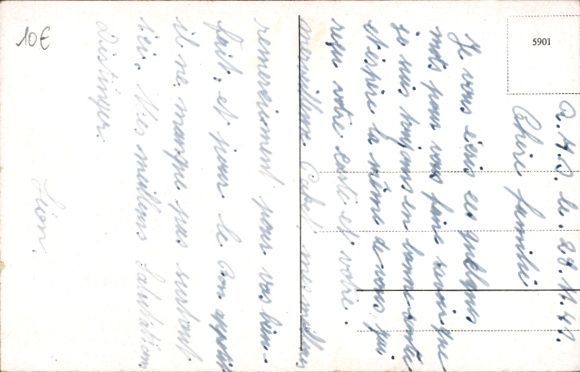 10€
5901
Q. H. D. le. 29. 11. 41.
Chère famille
Je vous écris ces quelques
mots pour vous faire savoir que
je suis toujours en bonne santé
et espère la même de vous, j'ai
reçu votre carte et votre
remerciement pour vos bien-
fait, et pour le bon appétit
il ne manque pas surtout
ici. Mes meilleurs Salutations
Distinguer.
Léon.